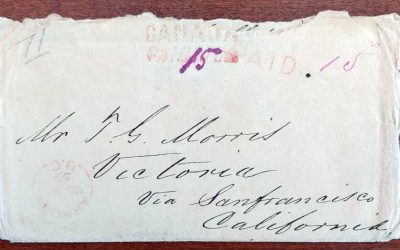 CANADA
15 PAID. 15
Mr T. G. Morris
Victoria
Via Sanfrancisco
California
U.C.